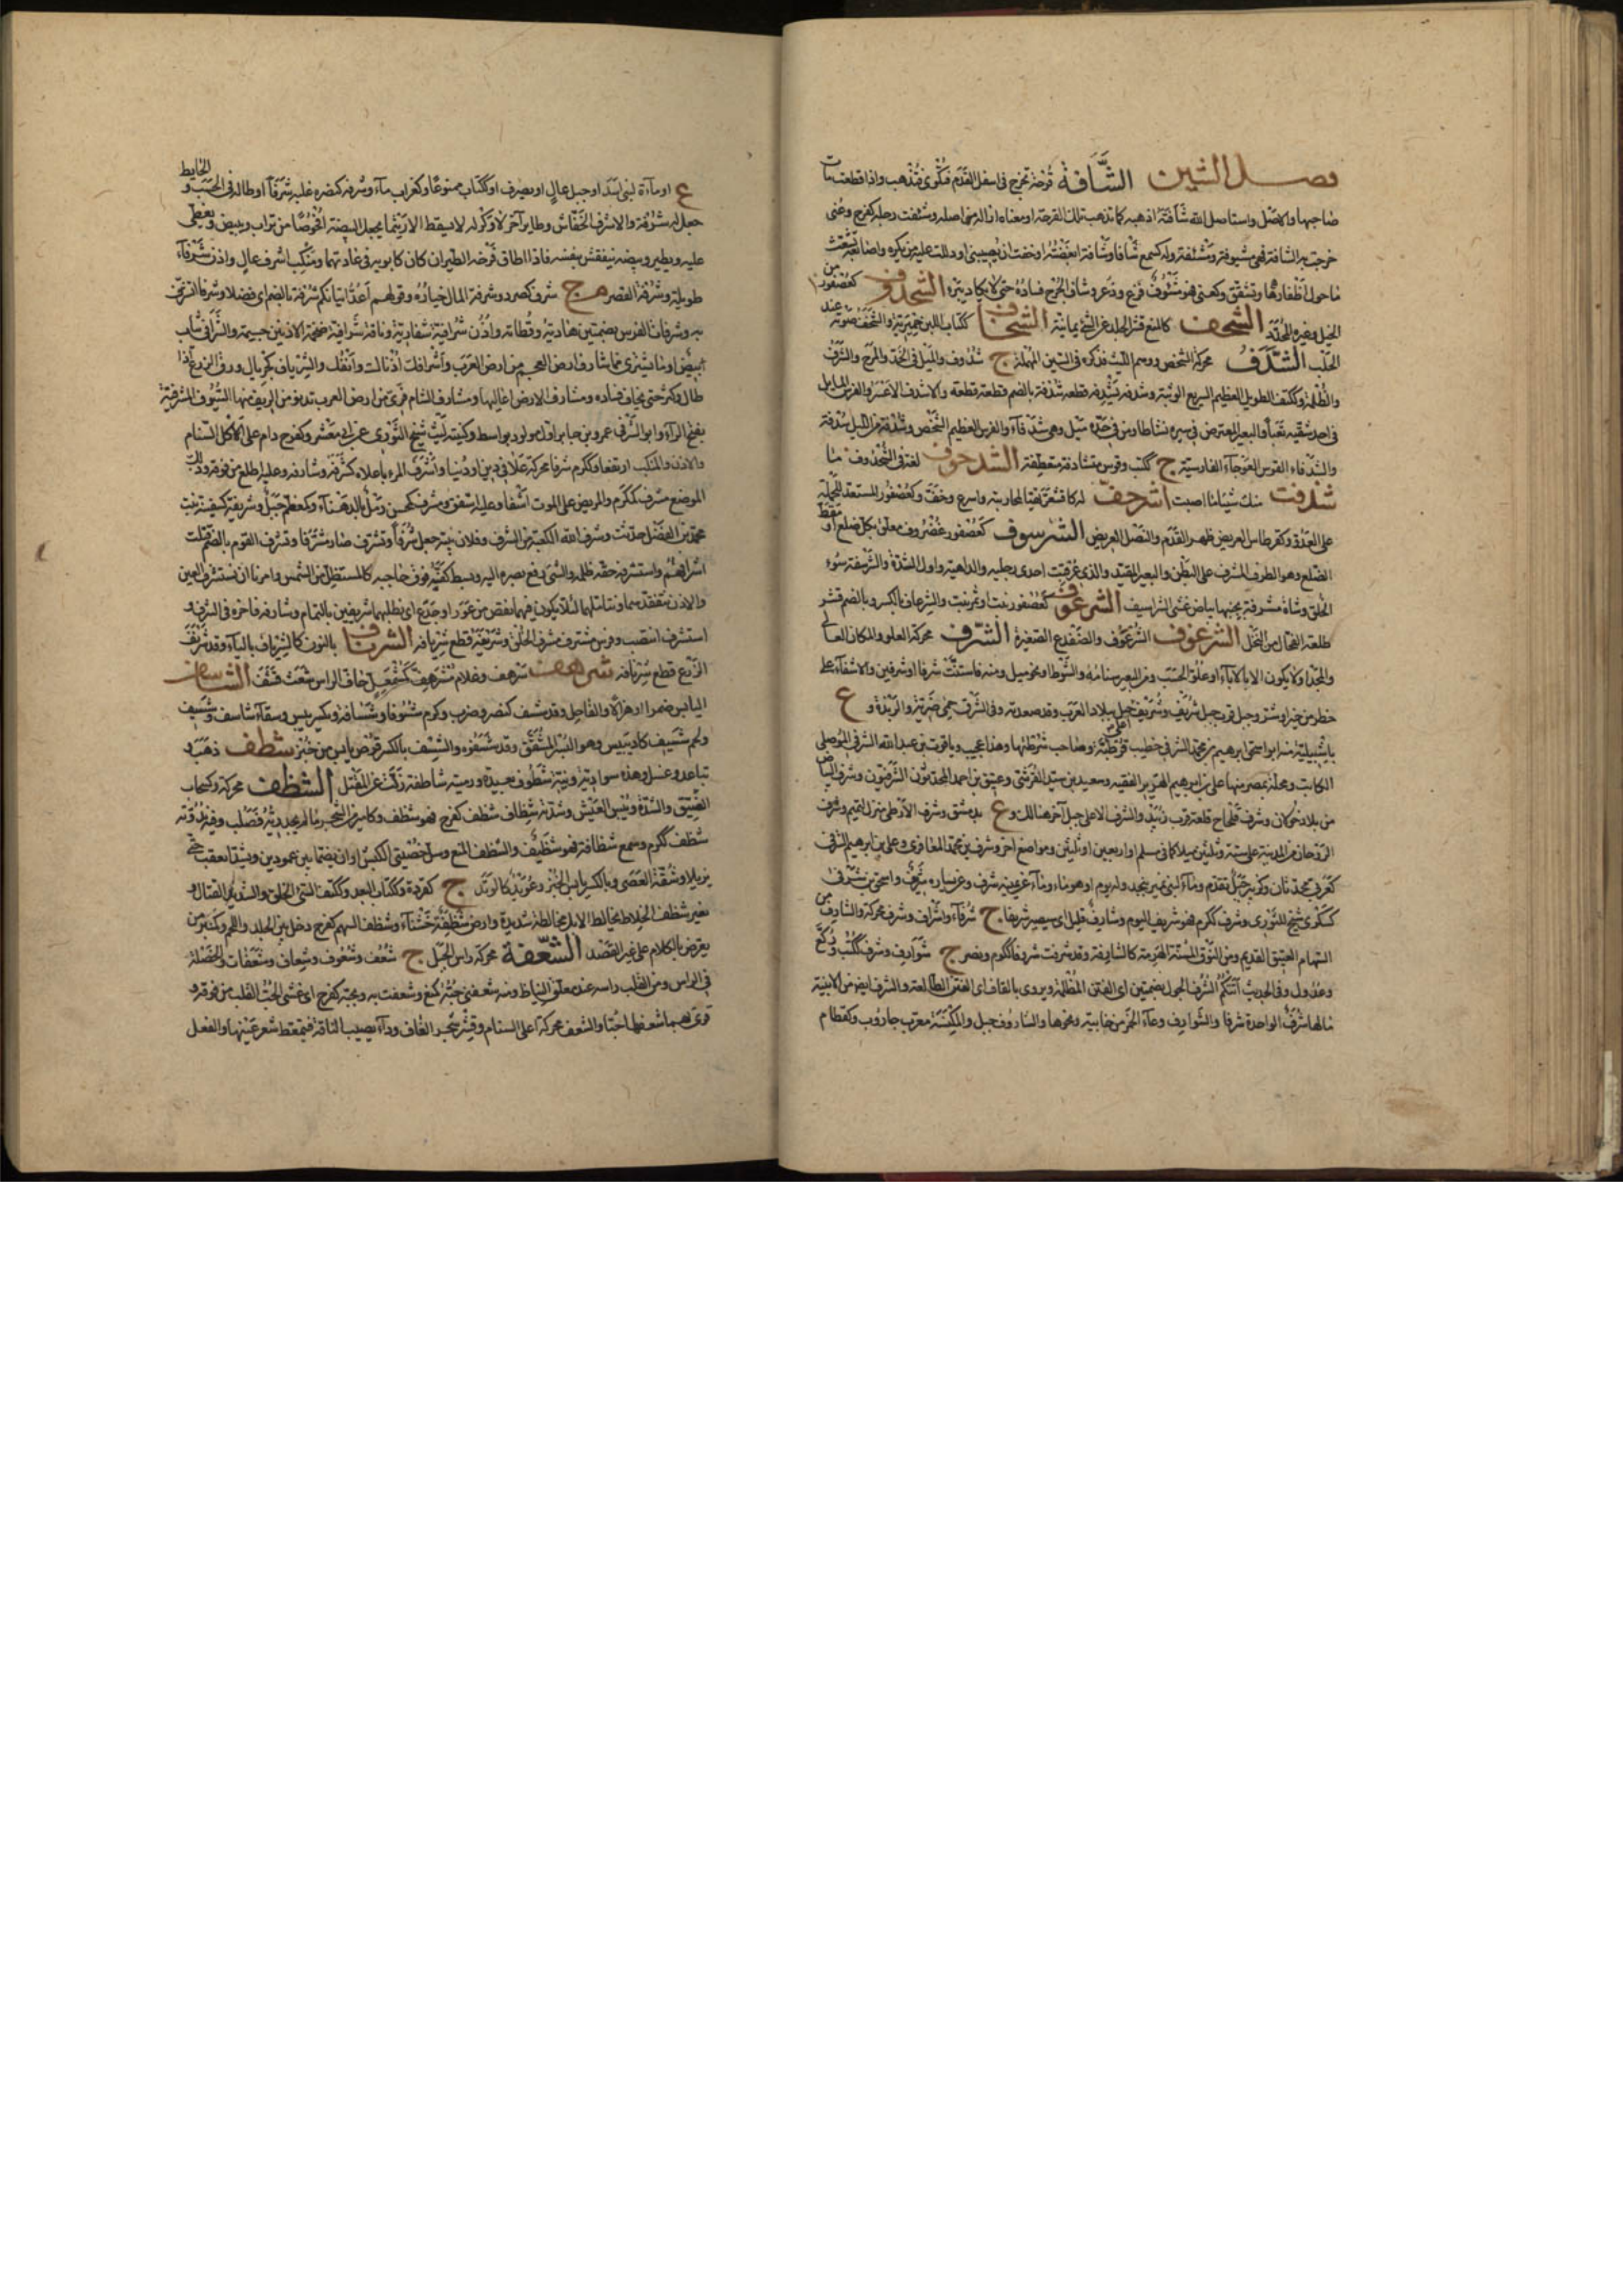 فصل الشين الشَّأفة قرحة تخرج في اسفل القدم فتكوى فتذهب واذا قطعت مات
صاحبها والاصل واستاصل الله شأفته اذهبه كما تذهب تلك القرحة او معناه ازاله من اصله وشئفت رجله كفرح وعنى
خرجت بها الشافة فهي مشؤفة
ما حول اظفارها وتشقق وكعنى فهو مشؤوف فزع وذعر وشأف الجرح فساده حتى لا يكاد يبرا الشحذوف كعصفور من
الجبل وغيره المحدد الشحف كالمنع قشر الجلد عن الشئ يمانية الشخاف ككتاب اللبن حميرية والشخف صوته عند
الحلب الشدف محركة الشخص ووهم الليث فذكره في السين المهملة ج شدوف والميل في الخد والمرح والشرف
والظلمة وككتف الطويل العظيم السريع الوثبة وشدفه يشدفه قطعه شدفة بالضم قطعة قطعة والاشدف الاعسر والفرس المايل
في احد شقيه بغيا والبعير المعترض في سيره نشاطا ومن في خده ميل وهي شدفاء والفرس العظيم الشخص وشدفة من الليل سدفة
والشدفاء القوس العوجاء الفارسية ج ككتب وقوس متشادفة منعطفة الشدحوف لغة في الشحذوف ما
شذفت منك شيئا ما اصبت اشرحف له كاقشعر تهيا لمحاربته واسرع وخف وكعصفور المستعد للحملة
على العدو وكقرطاس العريض ظهر القدم والنصل العريض الشرسوف كعصفور غضروف معلق بكل ضلع او مقط
الضلع وهو الطرف المشرف على البطن والبعير المقيد والذي عرقبت احدى رجليه والداهية واول الشدة والشرسفة سوء
الخلق وشاة مشرسفة بجنبها بياض غشى الشراسيف الشرعوف كعصفور نبت او ثمر نبت والشرعاف بالكسر وبالضم قشر
طلعة الفحال من النخل الشرغوف الشرعوف والضفدع الصغيرة الشرف محركة العلو والمكان العالي
والمجد او لا يكون الا بالاباء او علو الحسب ومن البعير سنامه والشوط او نحو ميل ومنه فاستنت شرفا او شرفين والاشفاء على
خطر من خير او شر وجبل قرب جبل شريف وشريف اعلى جبل ببلاد العرب وقد صعدته وفي الشرف حمى ضرية والربذة و ع
باشبيلية منه ابو اسحق ابرهيم بن محمد الشرفي خطيب قرطبة وصاحب شرطتها وهذا عجيب وياقوت بن عبدالله الشرفي الموصلي
الكاتب ومحلة بمصر منها على بن ابرهيم الضرير الفقيه وسعيد بن سيد القرشي وعتيق بن احمد المحدثون الشرفيون وشرف البياض
من بلاد خولان وشرف قلحاح قلعة قرب زبيد والشرف الاعلى جبل آخر هنالك و ع بدمشق وشرف الارطى منزل لتميم وشرف
الروحاء من المدينة على ستة وثلثين ميلا كما في مسلم او اربعين او ثلثين ومواضع اخر وشرف بن محمد المعافري وعلى بن ابرهيم الشرفي
كعربي محدثان وكزبير جبل تقدم وماء لبني نمير بنجد وله يوم او هو ماء وماء عن يمينه شرف وعن يساره شريف واسحق بن شرفى
كسكرى شيخ للثوري وشرف ككرم فهو شريف اليوم وشارف قليل اي سيصير شريفا ج شرفاء واشراف وشرف محركة والشارف من
السهام العتيق القديم ومن النوق المسنة الهرمة كالشارفة وقد شرفت شروفا ككرم ونصر ج شوارف وشرف ككتب وركع
وعدول وفي الحديث اتتكم الشرف الجون بضمتين اي الفتن المظلمة ويروى بالقاف اي الفتن الطالعة والشرف ايضا من الابنية
ما لها شرف الواحدة شرفا والشوارف وعاء الخمر من خابية ونحوها والشاروف جبل والمكنسة معرب جاروب وكقطام
ع او ماءة لبني اسد او جبل عال او يصرف او ككتاب ممنوعا وكغراب ماء وشرفه كنصره غلبه شرفا او طاله في الحسب والحايط
جعل له شرفة والاشرف الخفاش وطاير آخر لا وكر له لا يسقط الا ريثما يجعل البيضه افحوصا من تراب ويبيض ويغطى
عليه ويطير وبيضه يتفقس بنفسه فاذا اطاق فرخه الطيران كان كابويه في عادتهما ومنكب اشرف عال واذن شرفاء
طويلة وشرفة القصر م ج شرف كصرد وشرفة المال خياره وقولهم اعد اتيانكم شرفة بالضم اي فضلا وشرفا اتشرف
به وشرفات الفرس بضمتين هاديته وقطاته واذن شرافية شفارية وناقة شرافية ضخمة الاذنين جسيمة والشرافى ثياب
بيض او ما يشترى مما شارف ارض العجم من ارض العرب واشراف اذنك وانفك والشرياف كجريال ورق الزرع اذا
طال وكثر حتى يخاف فساده ومشارف الارض اعاليها ومشارف الشام قرى من ارض العرب تدنو من الريف منها السيوف المشرفية
بفتح الراء وابو المشرفي عمرو بن جابر اول مولود بواسط وكنية ليث شيخ الثوري عن ابي معشر وكفرح دام على اكل السنام
والاذن والمنكب ارتفعا وككرم شرفا محركة علا في دين او دنيا واشرف المربأ علاه كتشرفه وشارفه وعليه اطلع من فوق وذلك
الموضع مشرف كمكرم والمريض على الموت اشفا وعليه اشفق ومشرف كمحسن رمل بالدهناء وكمعظم جبل وشريفة كسفينة بنت
محمد بن الفضل حدثت وشرف الله الكعبة من الشرف وفلان بيته جعل شرفا وتشرف صار مشرفا وتشرف القوم بالضم قتلت
اشرافهم واستشرفه حقه ظلمه والشئ رفع بصره اليه وبسط كفه فوق حاجبه كالمستظل من الشمس وامرنا ان نستشرف العين
والاذن نتفقدهما ونتاملهما لئلا يكون فيهما نقص من عور او جدع اي نطلبهما شريفين بالتمام وشارفه فاخره في الشرف و
استشرف انتصب وفرس مشترف مشرف الخلق وشريفته قطع شريافه الشرناف بالنون كالشرياف بالياء وقد شرنف
الزرع قطع شرنافه شرهف شرهف وغلام مشرهف كمشمعل جاف الراس شعث قشف الشاسف
اليابس ضمرا او هزالا والقاحل وقد شسف كنصر وضرب وكرم شسوفا وشسافة ويكسر يبس وسقاء شاسف وشسيف
ولحم شسيف كاد ييبس وهو البسر المشقق وقد شسفوه والشسف بالكسر قرص يابس من خبز شطف ذهب و
تباعد وغسل وهذه سوادية ونية شطوف بعيدة ورمية شاطفة زلت عن المقتل الشظف محركة وكسحاب
الضيق والشدة ويبس العيش وشدته ج شظاف شظف كفرح فهو شظف وكامير من الشجر ما لم يجد ريه فصلب وفيه ندوته
شظف ككرم وسمع شظافة فهو شظيف والشظف المنع وسل خصيتي الكبش او ان يضمّا بين عودين ويشدا بعقب حتى
يذبلا وشقة العصى وبالكسر يابس الخبز وعويد كالوتد ج كقردة وككتاب البعد وككتف السئ الخلق والشديد القتال و
بعير شظف الخلاط يخالط الابل مخالطة شديدة وارض شظفة خشناء وشظف السهم كفرح دخل بين الجلد واللحم وكمنبر من
يعرض بالكلام على غير القصد الشعفة محركة راس الجبل ج شعف وشعوف وشعاف وشعفات والخصلة
في الراس ومن القلب راسه عند معلق النياط ومنه شعفني حبه كمنع وشعفت به وبحبه كفرح اي غشى الحب القلب من فوقه و
قرئ بهما شعفها حبا والشعف محركة اعلى السنام وقشر شجر الغاف وداء يصيب الناقة فيتمعط شعر عينيها والفعل